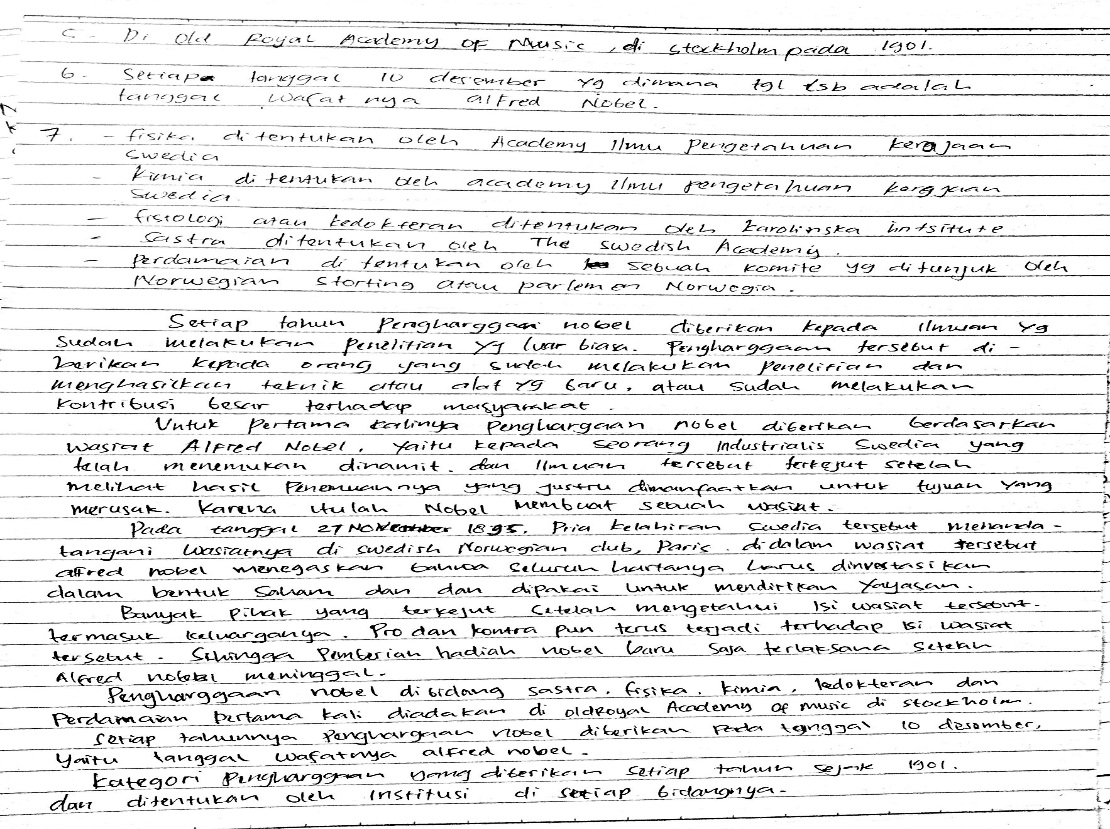 5. Di Old Royal Academy of Music, di stockholm pada 1901.
6. Setiap tanggal 10 desember yg dimana tgl tsb adalah
tanggal wafat nya alfred Nobel.
7. - fisika ditentukan oleh Academy Ilmu Pengetahuan kerajaan
Swedia
- kimia ditentukan oleh academy Ilmu pengetahuan kerajaan
Swedia.
- fisiologi atau kedokteran ditentukan oleh karolinska intsitute
- Sastra ditentukan oleh The swedish Academy.
- perdamaian di tentukan oleh sebuah komite yg ditunjuk oleh
Norwegian storting atau parlemen Norwegia.
Setiap tahun Pengharggaan nobel diberikan kepada Ilmuan yg
sudah melakukan penelitian yg luar biasa. Pengharggaan tersebut di -
berikan kepada orang yang sudah melakukan penelitian dan
menghasilkan teknik atau alat yg baru, atau sudah melakukan
kontribusi besar terhadap masyarakat.
Untuk pertama kalinya penghargaan nobel diberikan berdasarkan
wasiat Alfred Nobel, yaitu kepada seorang Industrialis Swedia yang
telah menemukan dinamit. dan Ilmuan tersebut terkejut setelah
melihat hasil Penemuannya yang justru dimanfaatkan untuk tujuan yang
merusak. Karena itulah Nobel membuat sebuah wasiat.
Pada tanggal 27 November 1895. Pria kelahiran swedia tersebut menanda -
tangani wasiatnya di swedish Norwegian club, Paris. didalam wasiat tersebut
alfred nobel menegaskan bahwa seluruh hartanya harus dinvestasikan
dalam bentuk saham dan dan dipakai untuk mendirikan Yayasan.
Banyak pihak yang terkejut setelah mengetahui Isi wasiat tersebut.
termasuk keluarganya. Pro dan kontra pun terus terjadi terhadap isi wasiat
tersebut. Sehingga Pemberian hadiah nobel baru saja terlaksana setelah
Alfred nobel meninggal.
Pengharggaan nobel dibidang sastra, fisika, kimia, kedokteran dan
Perdamaian pertama kali diadakan di oldRoyal Academy of music di stockholm.
Setiap tahunnya penghargaan nobel diberikan pada tanggal 10 desember,
yaitu tanggal wafatnya alfred nobel.
kategori pengharggaan yang diberikan setiap tahun sejak 1901.
dan ditentukan oleh institusi di setiap bidangnya.